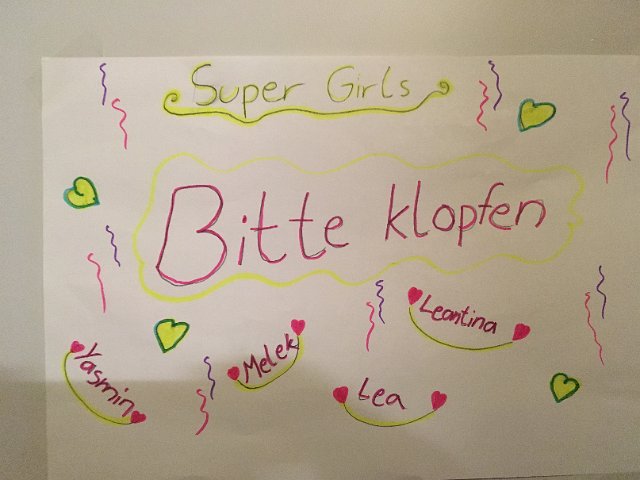 Super Girls
Bitte klopfen
Leantina
Yasmin
Melek
Lea